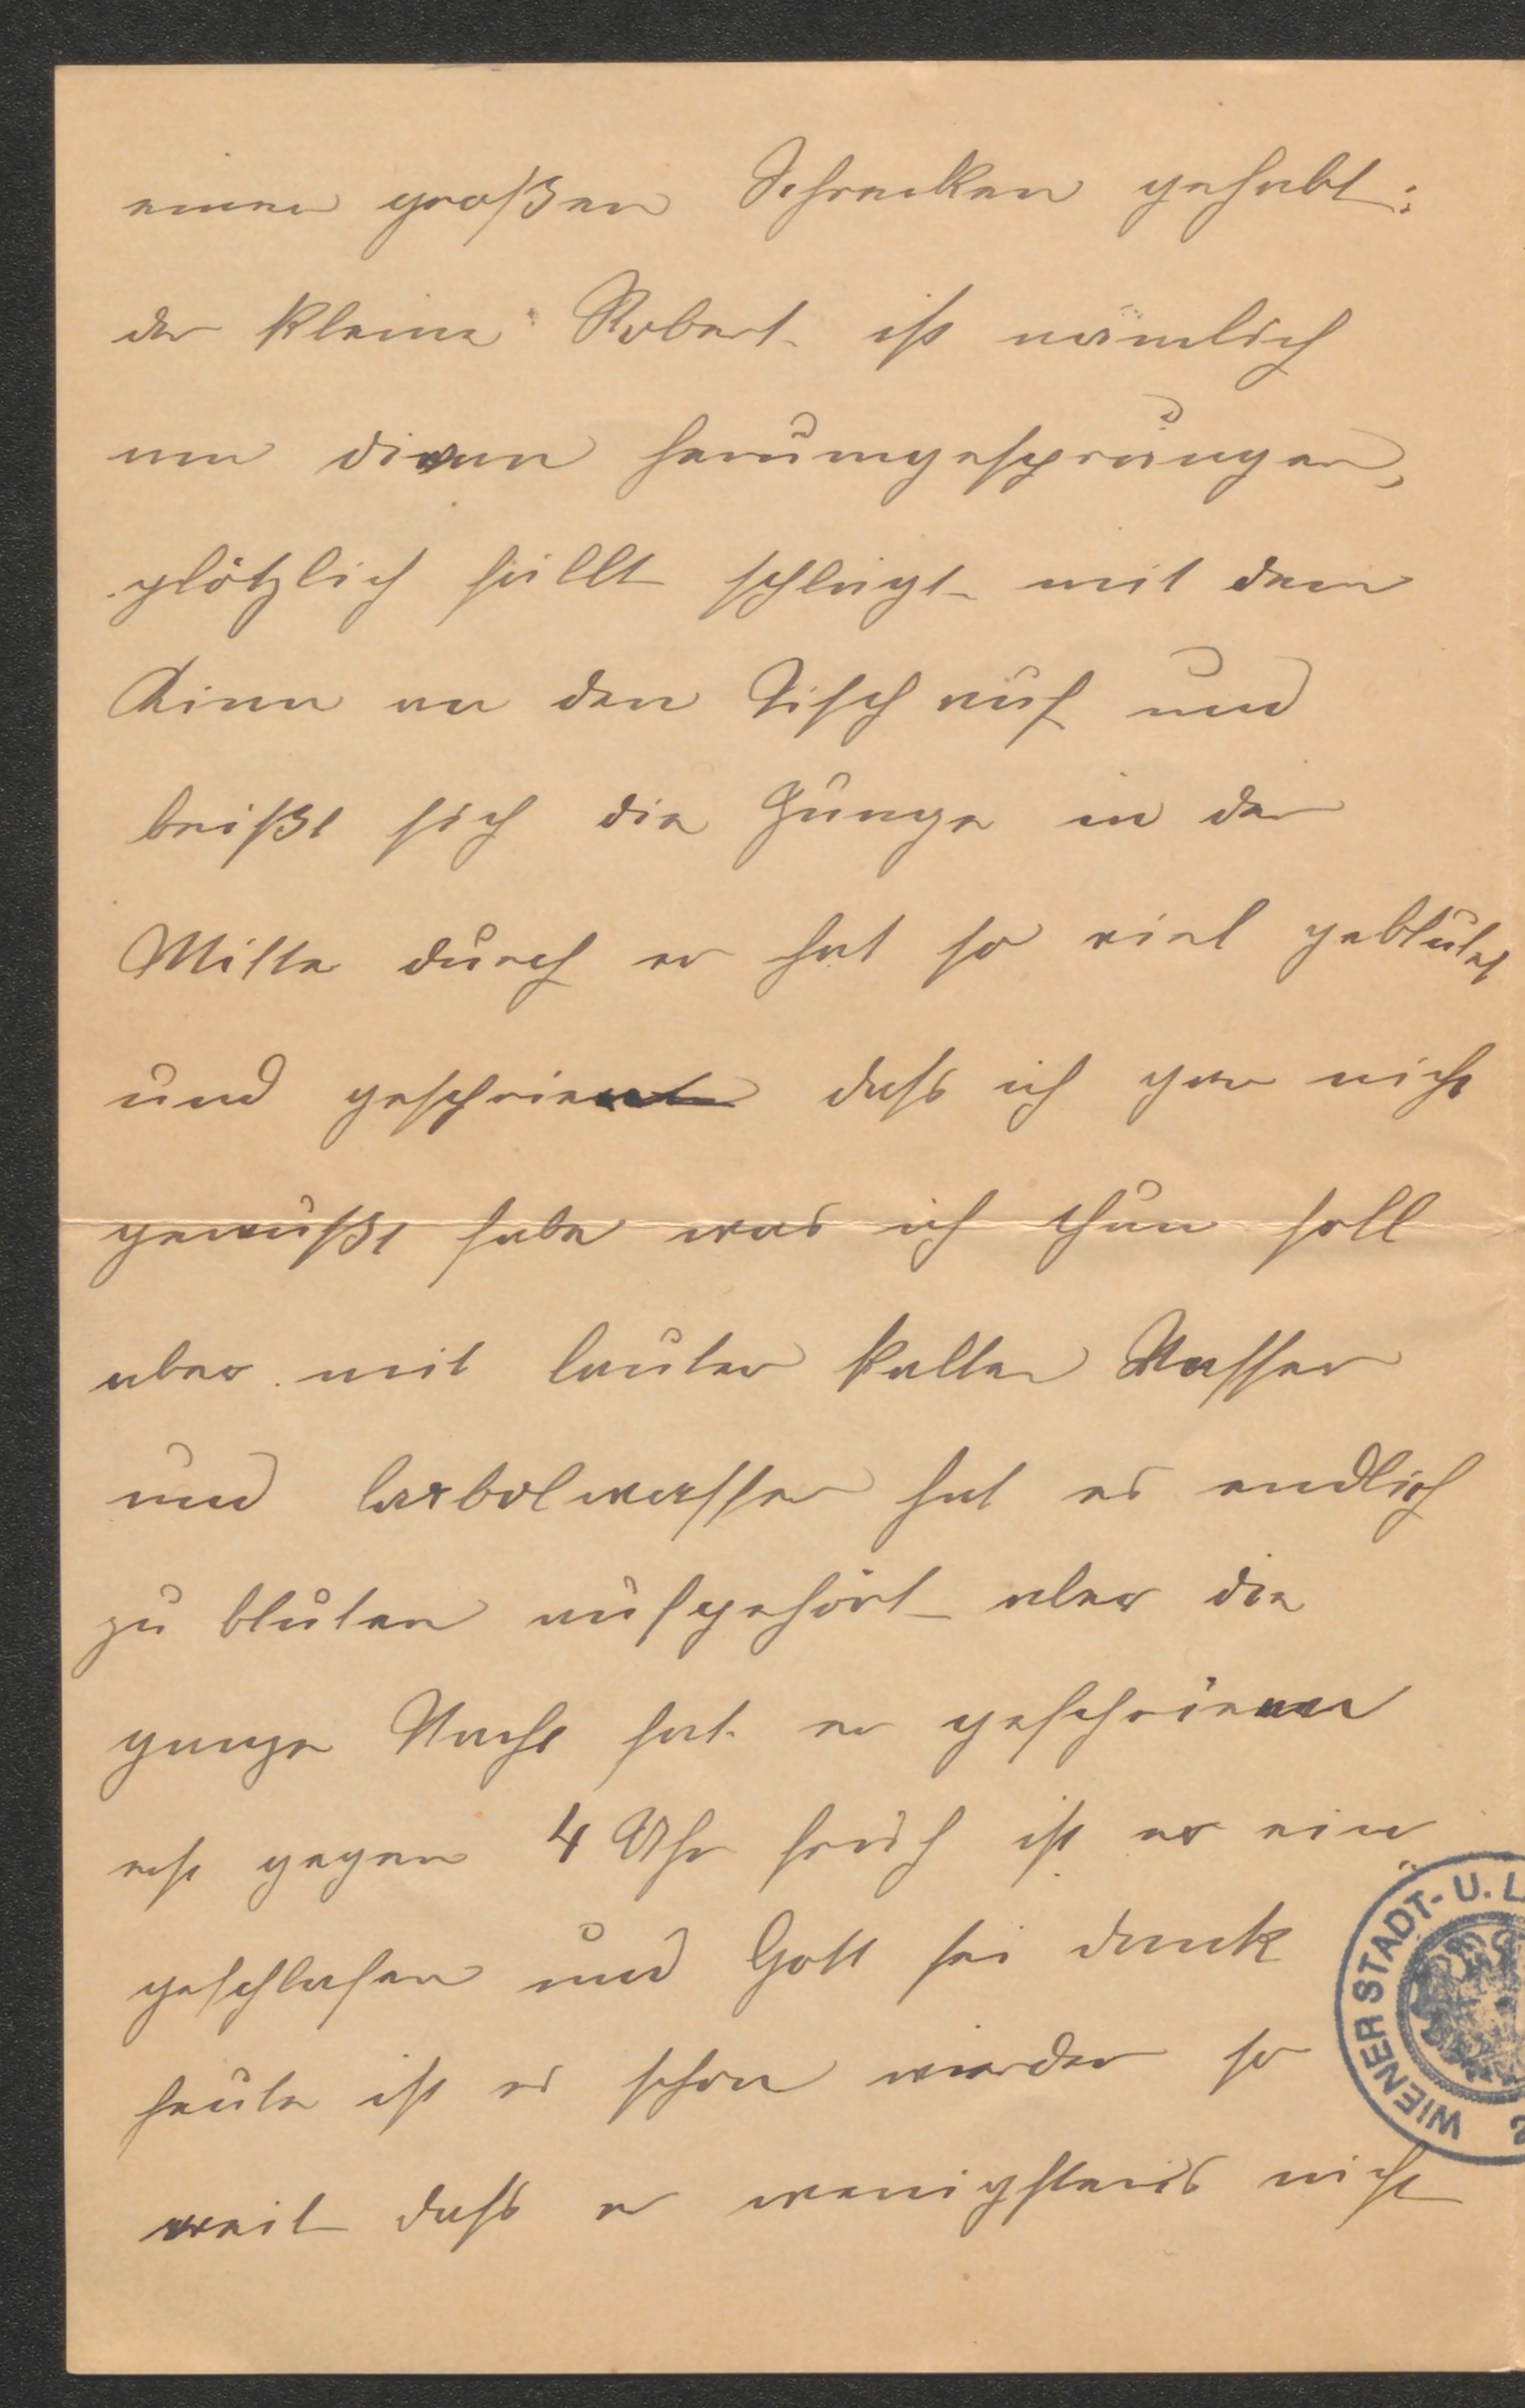 einen großen Schrecken gehabt:
der kleine Robert ist nämlich
am divan herumgesprungen,
plötzlich fällt schlägt mit dem
Kinn an den Tisch auf und
beißt sich die Zunge in der
Mitte durch er hat so viel geblutet
und geschrien dass ich gar nicht
gewußt habe was ich thun soll
aber mit lauter kalten Wasser
und Carbolwasser hat es endlich
zu bluten aufgehört aber die
ganze Nacht hat er geschrien
erst gegen 4 Uhr früh ist er ein
geschlafen und Gott sei dank
heute ist es schon wieder so
weit dass er wenigstens nicht
WIENER STADT- U. L
2